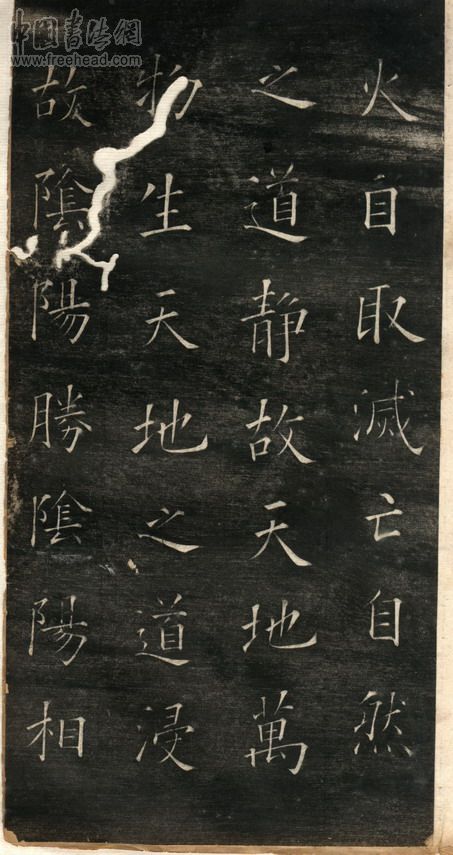 火自取滅亡自然
之道静故天地萬
物生天地之道浸
故隂陽勝隂陽相
中国书法網
www.freehead.com